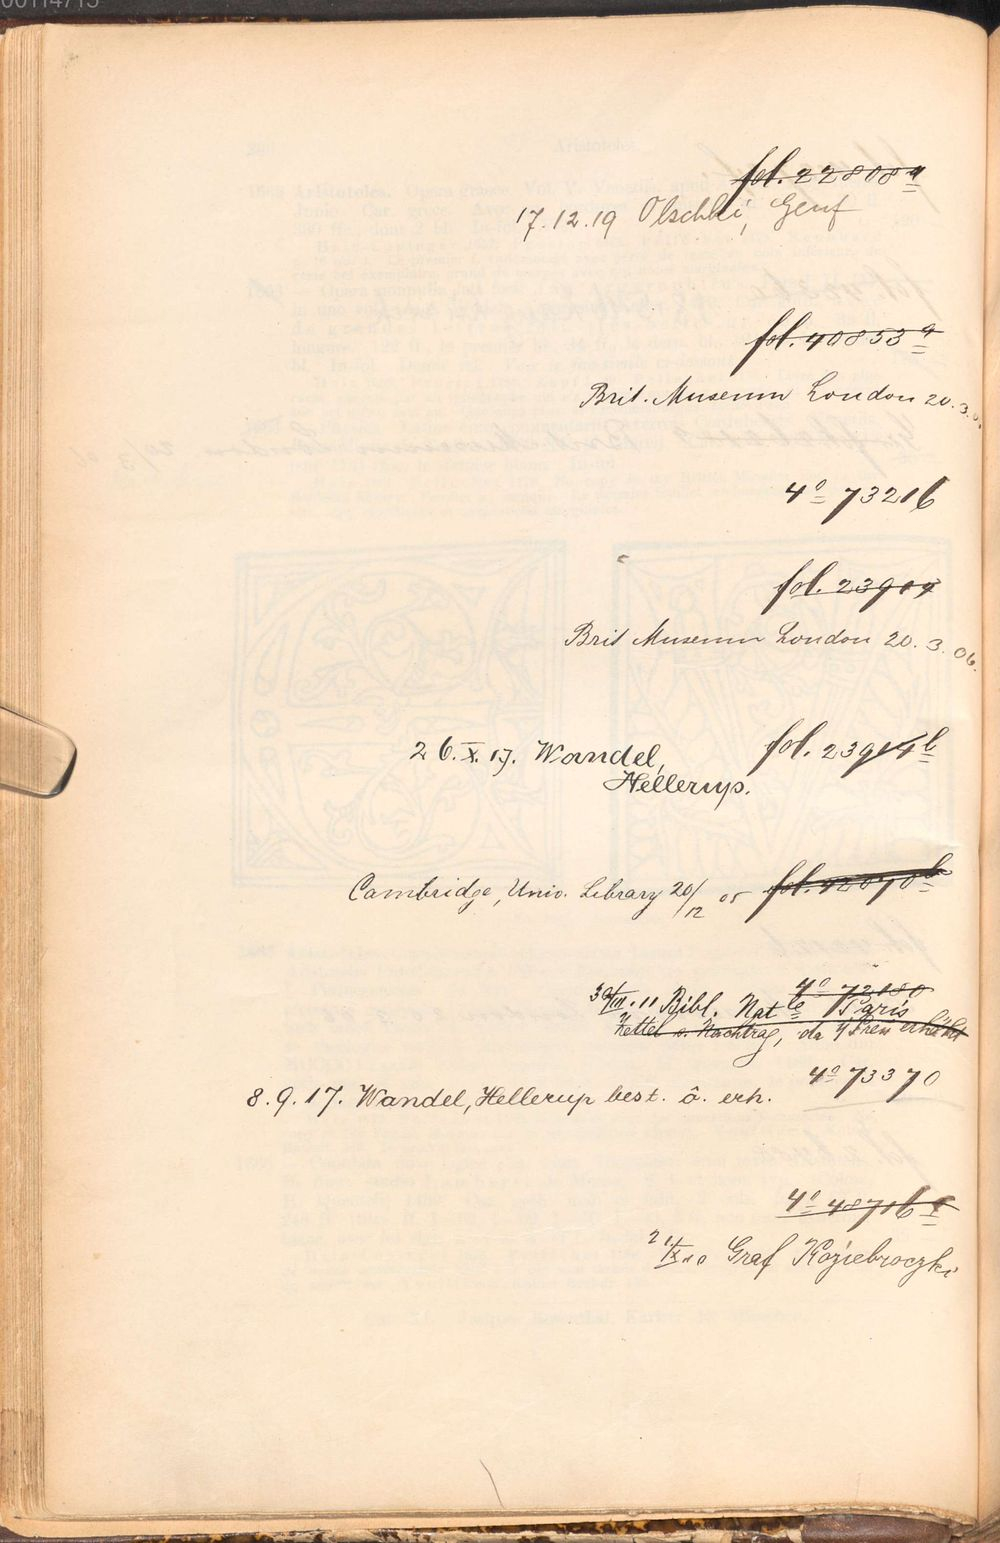 00114715
fol. 22808 a
17.12.19 Olschki, Genf
fol. 40853 a
Brit. Museum London 20.3.0
4o 73216
fol. 23904
Brit Museum London 20. 3. 06.
26.X.17. Wandel, fol. 23914 b
Hellerup.
Cambridge, Univ. Library 20/12 05 fol. 42070 b
4o 72180
30/III.11 Bibl. Natle Paris
Zettel s. Nachtrag, da erhöht
4o 73370
8.9.17. Wandel, Hellerup best. ô. erh.
4o 48716 a
21/X.10 Graf Koziebroczki